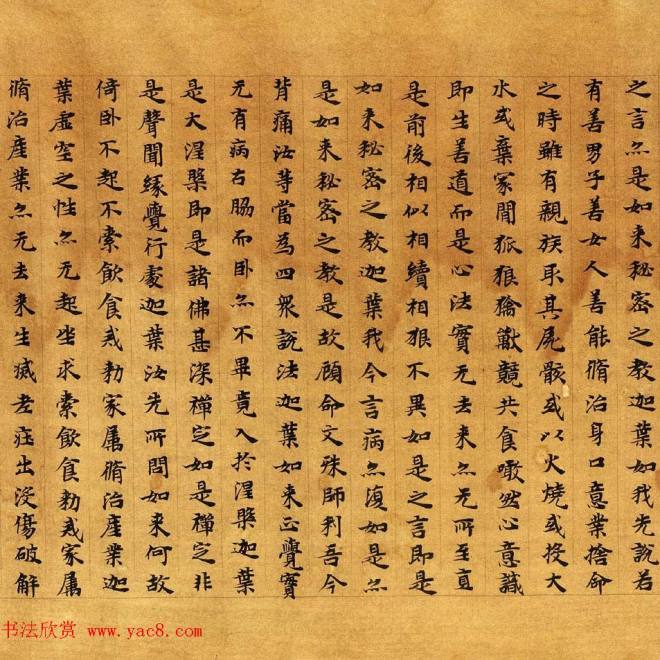 之言亦是如来秘密之教迦葉如我先說若
有善男子善女人善能脩治身口意業捨命
之時雖有親族取其屍骸或以火燒或投大
水或棄冢間狐狼禽獸競共食噉然心意識
即生善道而是心法實无去来亦无所至直
是前後相似相續相狠不異如是之言即是
如来秘密之教迦葉我今言病亦復如是亦
是如来秘密之教是故顧命文殊師利吾今
背痛汝等當為四眾說法迦葉如来正覺實
无有病右脇而卧亦不畢竟入於涅槃迦葉
是大涅槃即是諸佛甚深禪定如是禪定非
是聲聞緣覺行處迦葉汝先所問如来何故
倚卧不起不索飲食戒勑家属脩治產業迦
葉虛空之性亦无起坐求索飲食勑戒家属
脩治產業亦无去来生滅老症出没傷破解
书法欣赏 www.yac8.com